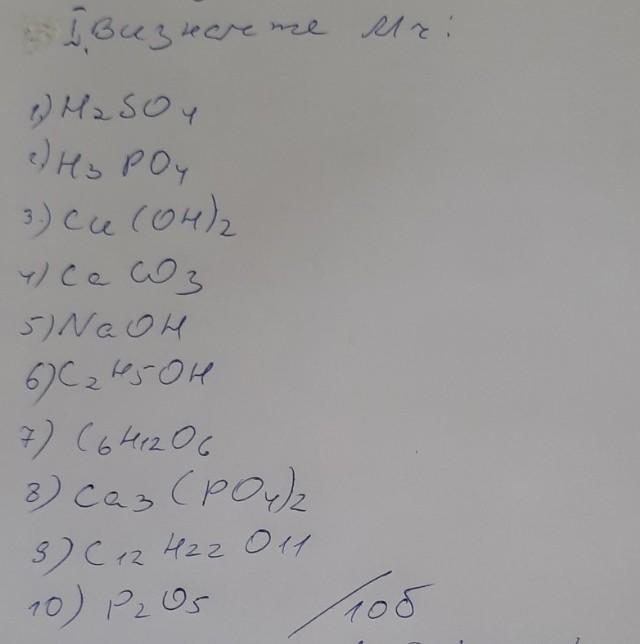 I. Визначте Mr:
1) H2SO4
2) H3PO4
3.) Cu(OH)2
4) CaCO3
5) NaOH
6) C2H5OH
7) C6H12O6
8) Ca3(PO4)2
9) C12H22O11
10) P2O5 /10б